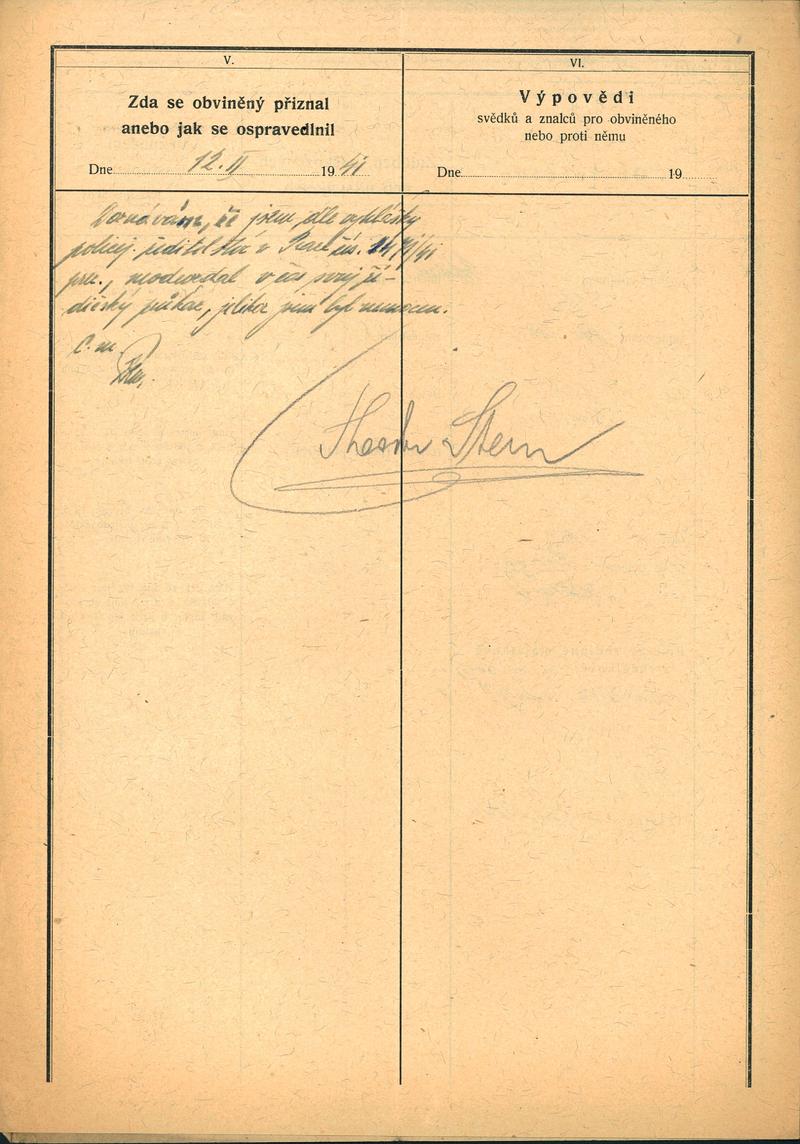 V.
Zda se obviněný přiznal
anebo jak se ospravedlnil
Dne 12. II 1941
VI.
Výpovědi
svědků a znalců pro obviněného
nebo proti němu
Dne 19
Doznávám, že jsem, dle vyhlášky
policej. ředitelství v Praze čís.
neodevzdal včas svůj ři-
dičský průkaz, jelikož jsem byl nemocen.
Stern